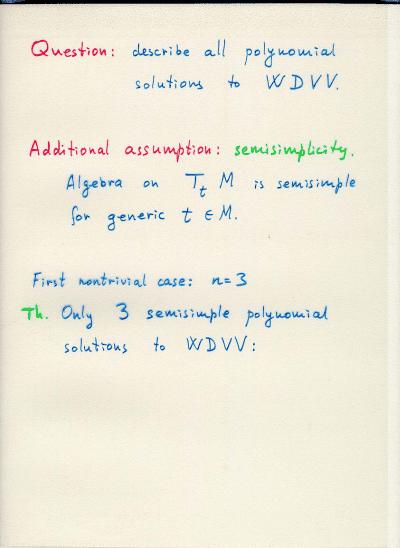 Question: describe all polynomial
solutions to WDVV.
Additional assumption: semisimplicity.
Algebra on T_t M is semisimple
for generic t ∈ M.
First nontrivial case: n=3
Th. Only 3 semisimple polynomial
solutions to WDVV: